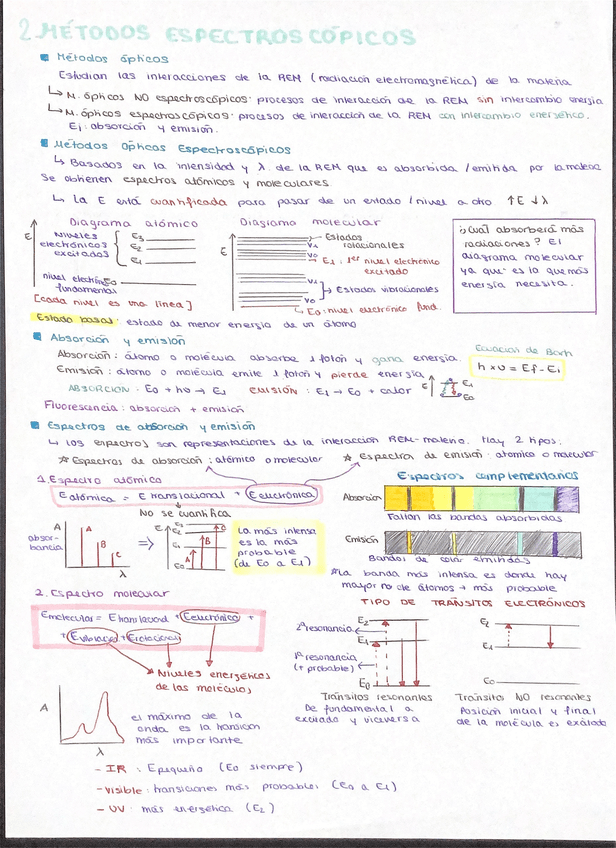 2. MÉTODOS ESPECTROSCÓPICOS
Métodos ópticos
Estudian las interacciones de la REM (radiación electromagnética) de la materia
↳ M. ópticos NO espectroscópicos: procesos de interacción de la REM sin intercambio energía
↳ M. ópticos espectroscópicos: procesos de interacción de la REM con intercambio energético.
Ej: absorción y emisión.
Métodos Ópticos Espectroscópicos
↳ Basados en la intensidad y λ de la REM que es absorbida / emitida por la materia
Se obtienen espectros atómicos y moleculares.
↳ La E está cuantificada para pasar de un estado / nivel a otro ↑E ↓λ
Diagrama atómico
E
Niveles electrónicos excitados
E3
E2
E1
nivel electrónico fundamental
E0
[cada nivel es una línea]
Diagrama molecular
E
Estados rotacionales
V1
V0
E1: 1er nivel electrónico excitado
V1
Estados vibracionales
V0
E0: nivel electrónico fund.
¿Cuál absorberá más
radiaciones? El
diagrama molecular
ya que es la que más
energía necesita.
Estado basal: estado de menor energía de un átomo
Absorción y emisión
Absorción: átomo o molécula absorbe 1 fotón y gana energía.
Emisión: átomo o molécula emite 1 fotón y pierde energía
Ecuación de Bohr
h x υ = Ef - Ei
ABSORCIÓN: E0 + hυ → E1 EMISIÓN: E1 → E0 + calor
E
E1
E0
Fluorescencia: absorción + emisión
Espectros de absorción y emisión
↳ los espectros son representaciones de la interacción REM-materia. Hay 2 tipos:
☆ Espectros de absorción: atómico o molecular ☆ Espectro de emisión: atómico o molecular
1. Espectro atómico
E atómica = E translacional + E electrónica
No se cuantifica
A
absorbancia
A
B
C
λ
=>
E
E3
E2
E1
E0
A
B
C
La más intensa
es la más
probable
(de E0 a E1)
Espectros complementarios
Absorción
Faltan las bandas absorbidas
Emisión
Bandas de color emitidas
*La banda más intensa es donde hay
mayor no de átomos → más probable
2. Espectro molecular
E molecular = E translacional + E electrónica +
+ E vibracional + E rotacional
Niveles energéticos
de las moléculas
A
λ
el máximo de la
onda es la transición
más importante
TIPO DE TRÁNSITOS ELECTRÓNICOS
2ª resonancia
1ª resonancia
(+ probable)
E2
E1
E0
Tránsitos resonantes
De fundamental a
excitado y viceversa
E2
E1
E0
Tránsitos NO resonantes
Posición inicial y final
de la molécula es excitado
- IR: E pequeña (E0 siempre)
- Visible: transiciones más probables (E0 a E1)
- UV: más energética (E2)